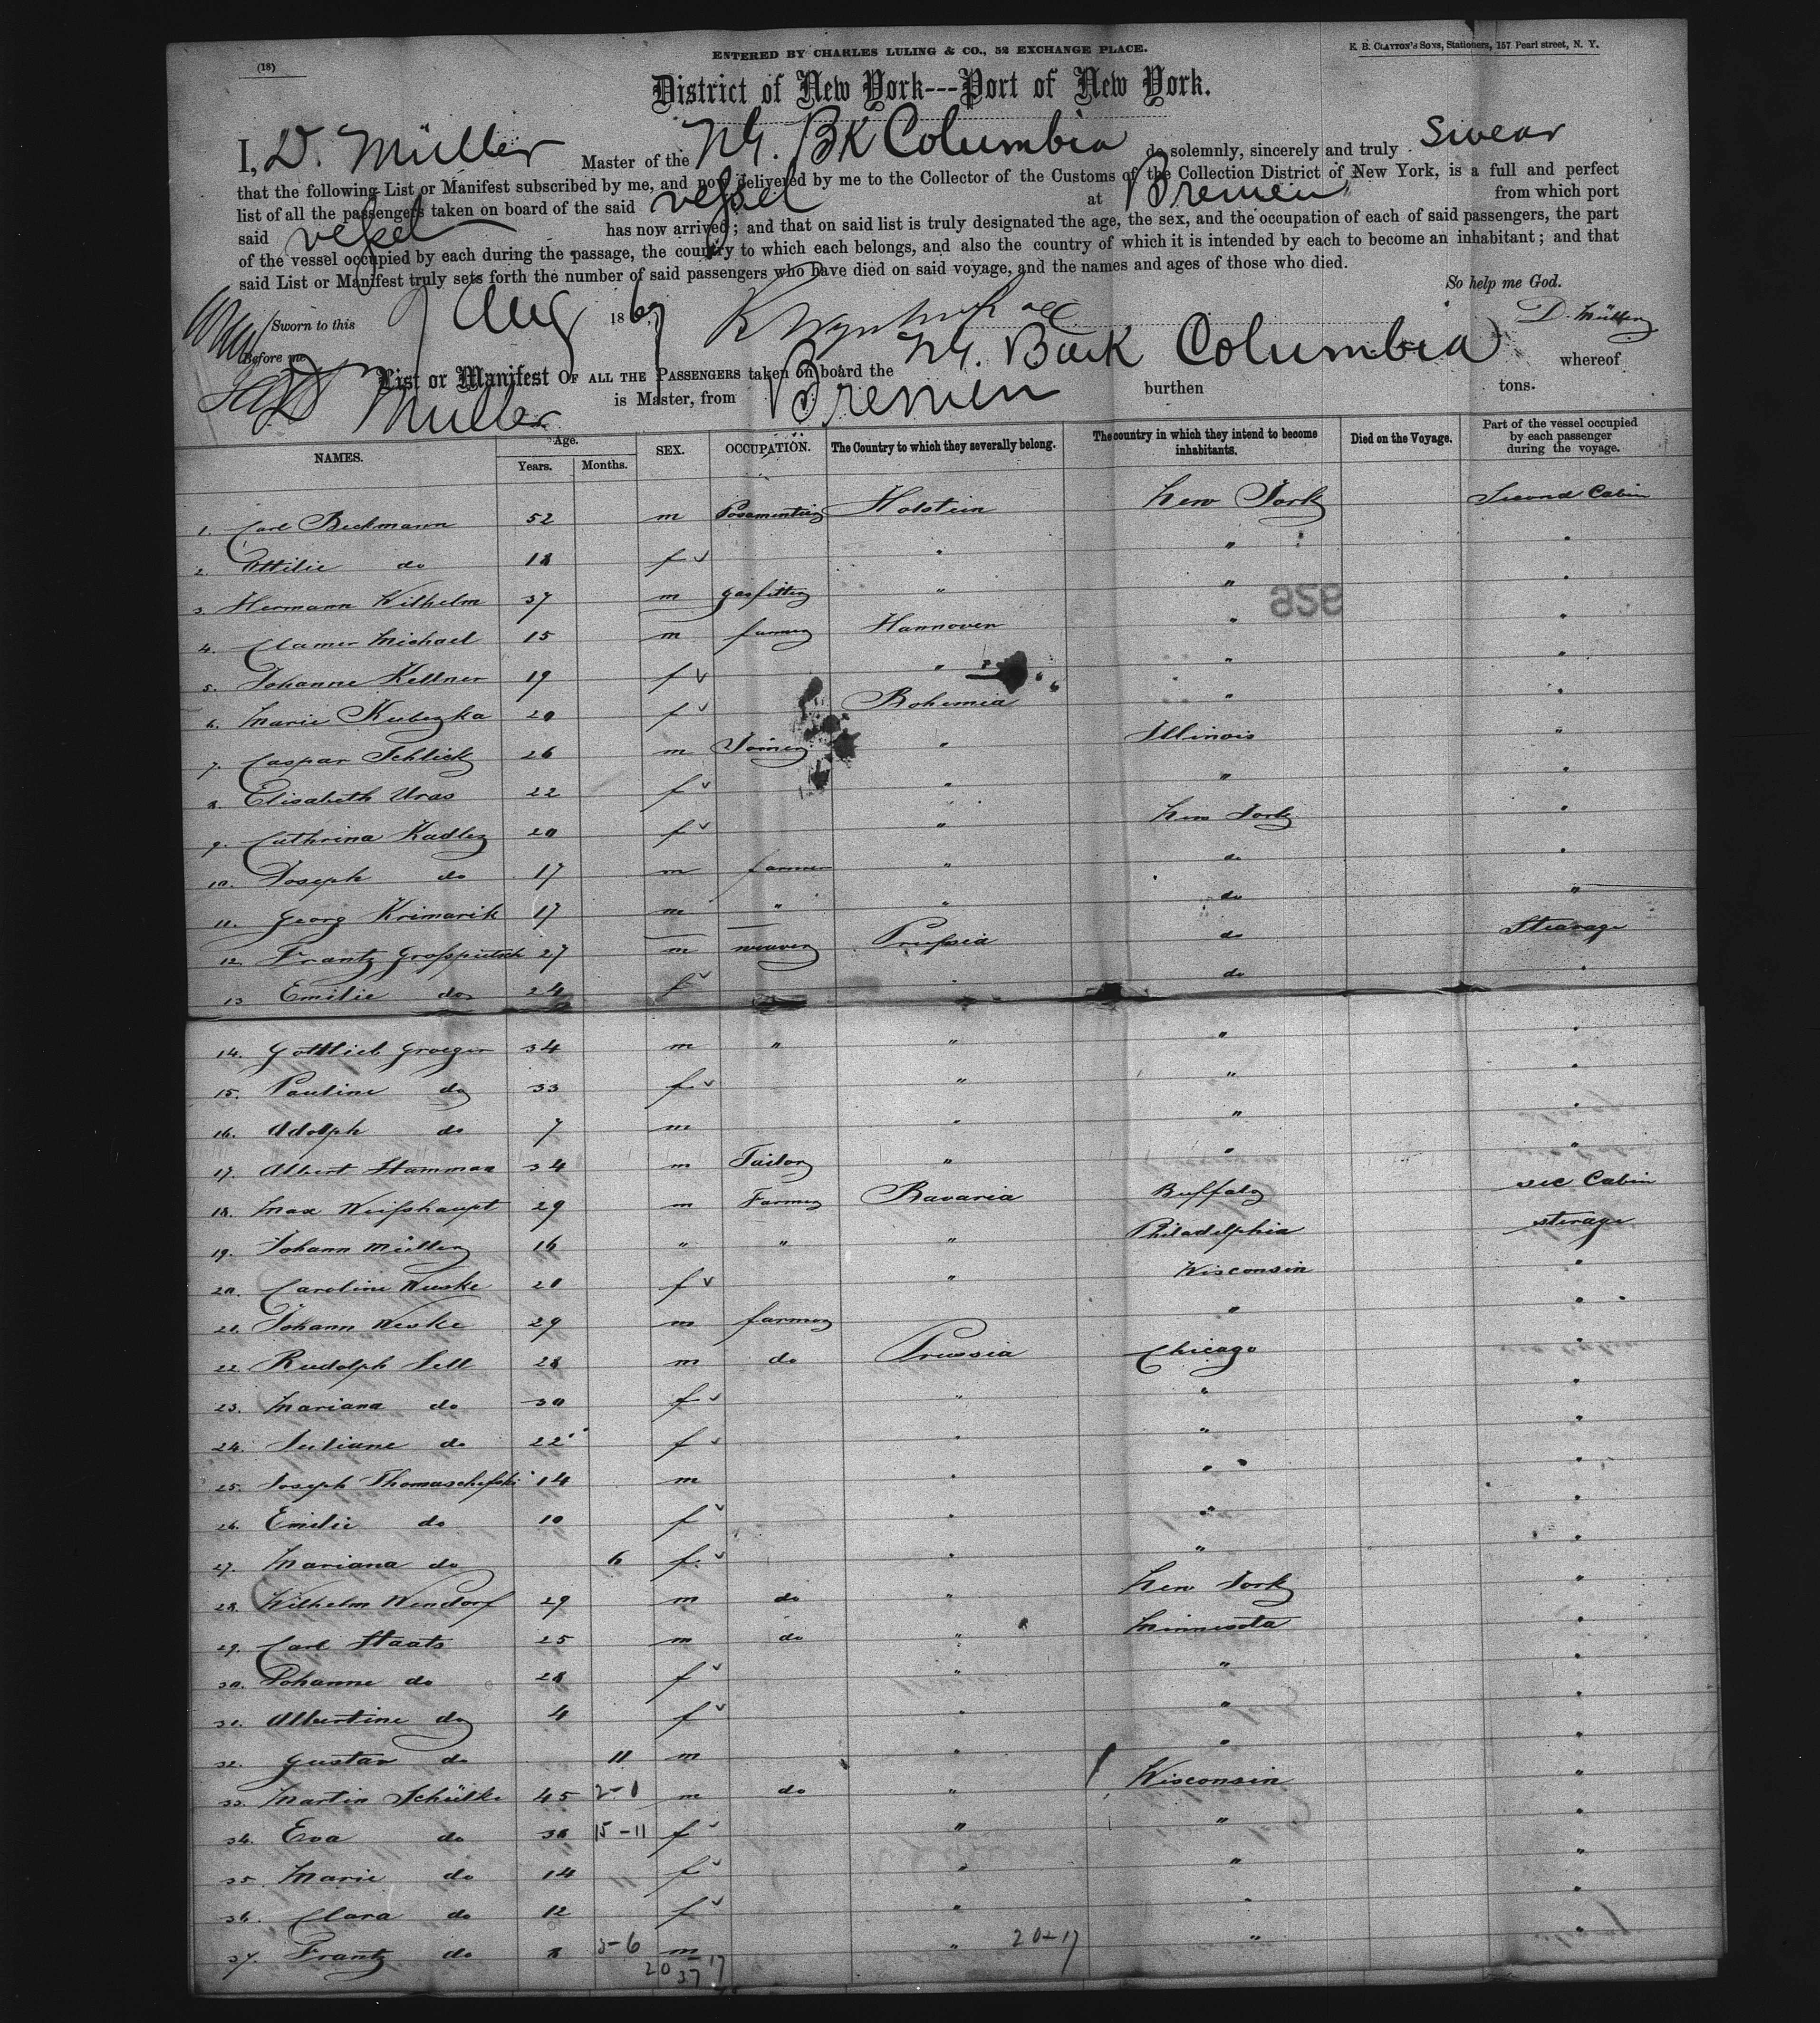 (18)
ENTERED BY CHARLES LULING & CO., 52 EXCHANGE PLACE.
E. B. CLAYTON'S SONS, Stationers, 157 Pearl street, N. Y.
District of New York---Port of New York.
I, D. Müller Master of the NG. BK Columbia do solemnly, sincerely and truly swear
that the following List or Manifest subscribed by me, and now delivered by me to the Collector of the Customs of the Collection District of New York, is a full and perfect
list of all the passengers taken on board of the said vessel at Bremen from which port
said vessel has now arrived; and that on said list is truly designated the age, the sex, and the occupation of each of said passengers, the part
of the vessel occupied by each during the passage, the country to which each belongs, and also the country of which it is intended by each to become an inhabitant; and that
said List or Manifest truly sets forth the number of said passengers who have died on said voyage, and the names and ages of those who died.
So help me God.
Sworn to this 7 Aug 1867 D. Müller
Before me
List or Manifest OF ALL THE PASSENGERS taken on board the NG. Bark Columbia whereof
D Müller is Master, from Bremen burthen tons.
NAMES. Age. Years. Months. SEX. OCCUPATION. The Country to which they severally belong. The country in which they intend to become inhabitants. Died on the Voyage. Part of the vessel occupied by each passenger during the voyage.
1. Carl Beckmann 52 m Holstein New York Second Cabin
2. Ottilie do 18 f " " "
3. Hermann Wilhelm 37 m gasfitter " " "
4. Clamer Michael 15 m farmer Hannover " "
5. Johanne Kellner 19 f " " "
6. Marie Kubezka 20 f Bohemia " "
7. Caspar Schlick 26 m Joiner " Illinois "
8. Elisabeth Uras 22 f " " "
9. Cathrina Kadlez 20 f " New York "
10. Joseph do 17 m farmer " do "
11. Georg Krimarik 17 m " " do "
12. Frantz 27 m weaver Prussia do Stearage
13 Emilie do 24 f " do "
14. Gottlieb Groeger 34 m " " " "
15. Pauline do 33 f " " "
16. Adolph do 7 m " " "
17. Albert Hamman 34 m Tailor " " "
18. Max Weisshaupt 29 m Farmer Bavaria Buffalo sec Cabin
19. Johann Müller 16 " " " Philadelphia sterage
20. Caroline Weske 20 f " Wisconsin "
21. Johann Weske 29 m farmer " "
22. Rudolph Sell 28 m do Prussia Chicago "
23. Mariana do 30 f " " "
24. Juliane do 22 f " " "
25. Joseph Thomaschefski 14 m " " "
26. Emilie do 10 f " " "
27. Mariana do 6 f. " " "
28. Wilhelm Wendorf 29 m do " New York "
29. Carl Staats 25 m do " Minnesota "
30. Johanne do 28 f " " "
31. Albertine do 4 f " " "
32. Gustav do 11 m " " "
33. Martin Schülke 45 2-1 m do " Wisconsin "
34. Eva do 38 15-11 f " " "
35. Marie do 14 f " " "
36. Clara do 12 f " " "
37. Frantz do 8 3-6 m " 20-17 " "
20 37 17